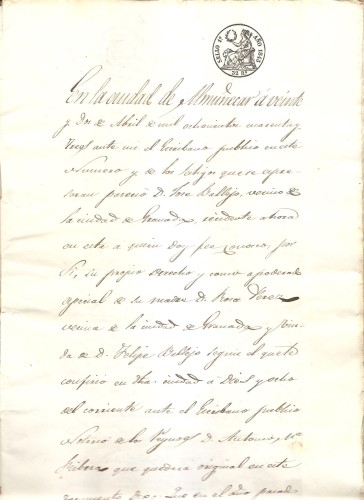 SELLO 4º AÑO 1843
En la ciudad de Almuñecar à veinte
y dos de Abril de mil ochocientos cuarenta y
tres ante mi el Escribano publico en este
Numero y de los testigos que se espre-
saran parecio D. Jose Vallejo, vecino de
la ciudad de Granada, residente ahora
en esta a quien doy fee conozco, por
Si, su propio derecho y como apoderado
especial de su madre D. Rosa Perez
vecina de la ciudad de Granada, y viu-
da de D. Felipe Vallejo segun el que le
confirio en dha. ciudad a Diez y ocho
del corriente ante el Escribano publico
Notario de los Reynos D. Antonio Mª
que quedara original en este